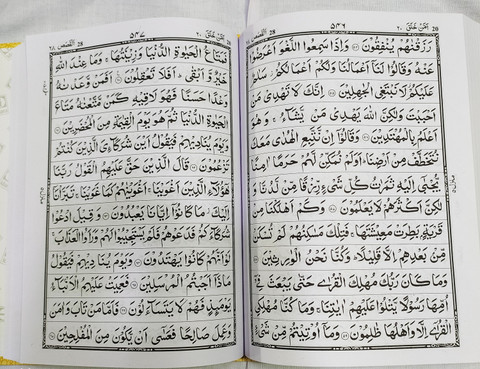 امن خلق ٢٠ 20 ٥٤٦ القصص ٢٨ 28
رَزَقْنٰهُمْ يُنْفِقُوْنَ ۝٥٤ وَاِذَا سَمِعُوا اللَّغْوَ اَعْرَضُوْا
عَنْهُ وَقَالُوْا لَنَاۤ اَعْمَالُنَا وَلَكُمْ اَعْمَالُكُمْ سَلٰمٌ
عَلَيْكُمْ لَا نَبْتَغِى الْجٰهِلِيْنَ ۝٥٥ اِنَّكَ لَا تَهْدِىْ مَنْ
اَحْبَبْتَ وَلٰكِنَّ اللّٰهَ يَهْدِىْ مَنْ يَّشَآءُ وَهُوَ
اَعْلَمُ بِالْمُهْتَدِيْنَ ۝٥٦ وَقَالُوْۤا اِنْ نَّتَّبِعِ الْهُدٰى مَعَكَ
نُتَخَطَّفْ مِنْ اَرْضِنَا اَوَلَمْ نُمَكِّنْ لَّهُمْ حَرَمًا اٰمِنًا
يُّجْبٰٓى اِلَيْهِ ثَمَرٰتُ كُلِّ شَىْءٍ رِّزْقًا مِّنْ لَّدُنَّا وَ
لٰكِنَّ اَكْثَرَهُمْ لَا يَعْلَمُوْنَ ۝٥٧ وَكَمْ اَهْلَكْنَا مِنْ
قَرْيَةٍۭ بَطِرَتْ مَعِيْشَتَهَا فَتِلْكَ مَسٰكِنُهُمْ لَمْ تُسْكَنْ
مِّنْۢ بَعْدِهِمْ اِلَّا قَلِيْلًا وَكُنَّا نَحْنُ الْوٰرِثِيْنَ ۝٥٨
وَمَا كَانَ رَبُّكَ مُهْلِكَ الْقُرٰى حَتّٰى يَبْعَثَ فِىْۤ
اُمِّهَا رَسُوْلًا يَّتْلُوْا عَلَيْهِمْ اٰيٰتِنَا وَمَا كُنَّا مُهْلِكِى
الْقُرٰٓى اِلَّا وَاَهْلُهَا ظٰلِمُوْنَ ۝٥٩ وَمَاۤ اُوْتِيْتُمْ مِّنْ شَىْءٍ
امن خلق ٢٠ 20 ٥٤٧ القصص ٢٨ 28
فَمَتَاعُ الْحَيٰوةِ الدُّنْيَا وَزِيْنَتُهَا وَمَا عِنْدَ اللّٰهِ
خَيْرٌ وَّاَبْقٰى اَفَلَا تَعْقِلُوْنَ ۝٦٠ اَفَمَنْ وَّعَدْنٰهُ
وَعْدًا حَسَنًا فَهُوَ لَاقِيْهِ كَمَنْ مَّتَّعْنٰهُ مَتَاعَ
الْحَيٰوةِ الدُّنْيَا ثُمَّ هُوَ يَوْمَ الْقِيٰمَةِ مِنَ الْمُحْضَرِيْنَ ۝٦١
وَيَوْمَ يُنَادِيْهِمْ فَيَقُوْلُ اَيْنَ شُرَكَآءِىَ الَّذِيْنَ كُنْتُمْ
تَزْعُمُوْنَ ۝٦٢ قَالَ الَّذِيْنَ حَقَّ عَلَيْهِمُ الْقَوْلُ رَبَّنَا
هٰٓؤُلَآءِ الَّذِيْنَ اَغْوَيْنَا اَغْوَيْنٰهُمْ كَمَا غَوَيْنَا تَبَرَّاْنَاۤ
اِلَيْكَ مَا كَانُوْۤا اِيَّانَا يَعْبُدُوْنَ ۝٦٣ وَقِيْلَ ادْعُوْا
شُرَكَآءَكُمْ فَدَعَوْهُمْ فَلَمْ يَسْتَجِيْبُوْا لَهُمْ وَرَاَوُا الْعَذَابَ
لَوْ اَنَّهُمْ كَانُوْا يَهْتَدُوْنَ ۝٦٤ وَيَوْمَ يُنَادِيْهِمْ فَيَقُوْلُ
مَاذَاۤ اَجَبْتُمُ الْمُرْسَلِيْنَ ۝٦٥ فَعَمِيَتْ عَلَيْهِمُ الْاَنْۢبَآءُ
يَوْمَئِذٍ فَهُمْ لَا يَتَسَآءَلُوْنَ ۝٦٦ فَاَمَّا مَنْ تَابَ وَاٰمَنَ
وَعَمِلَ صَالِحًا فَعَسٰٓى اَنْ يَّكُوْنَ مِنَ الْمُفْلِحِيْنَ ۝٦٧